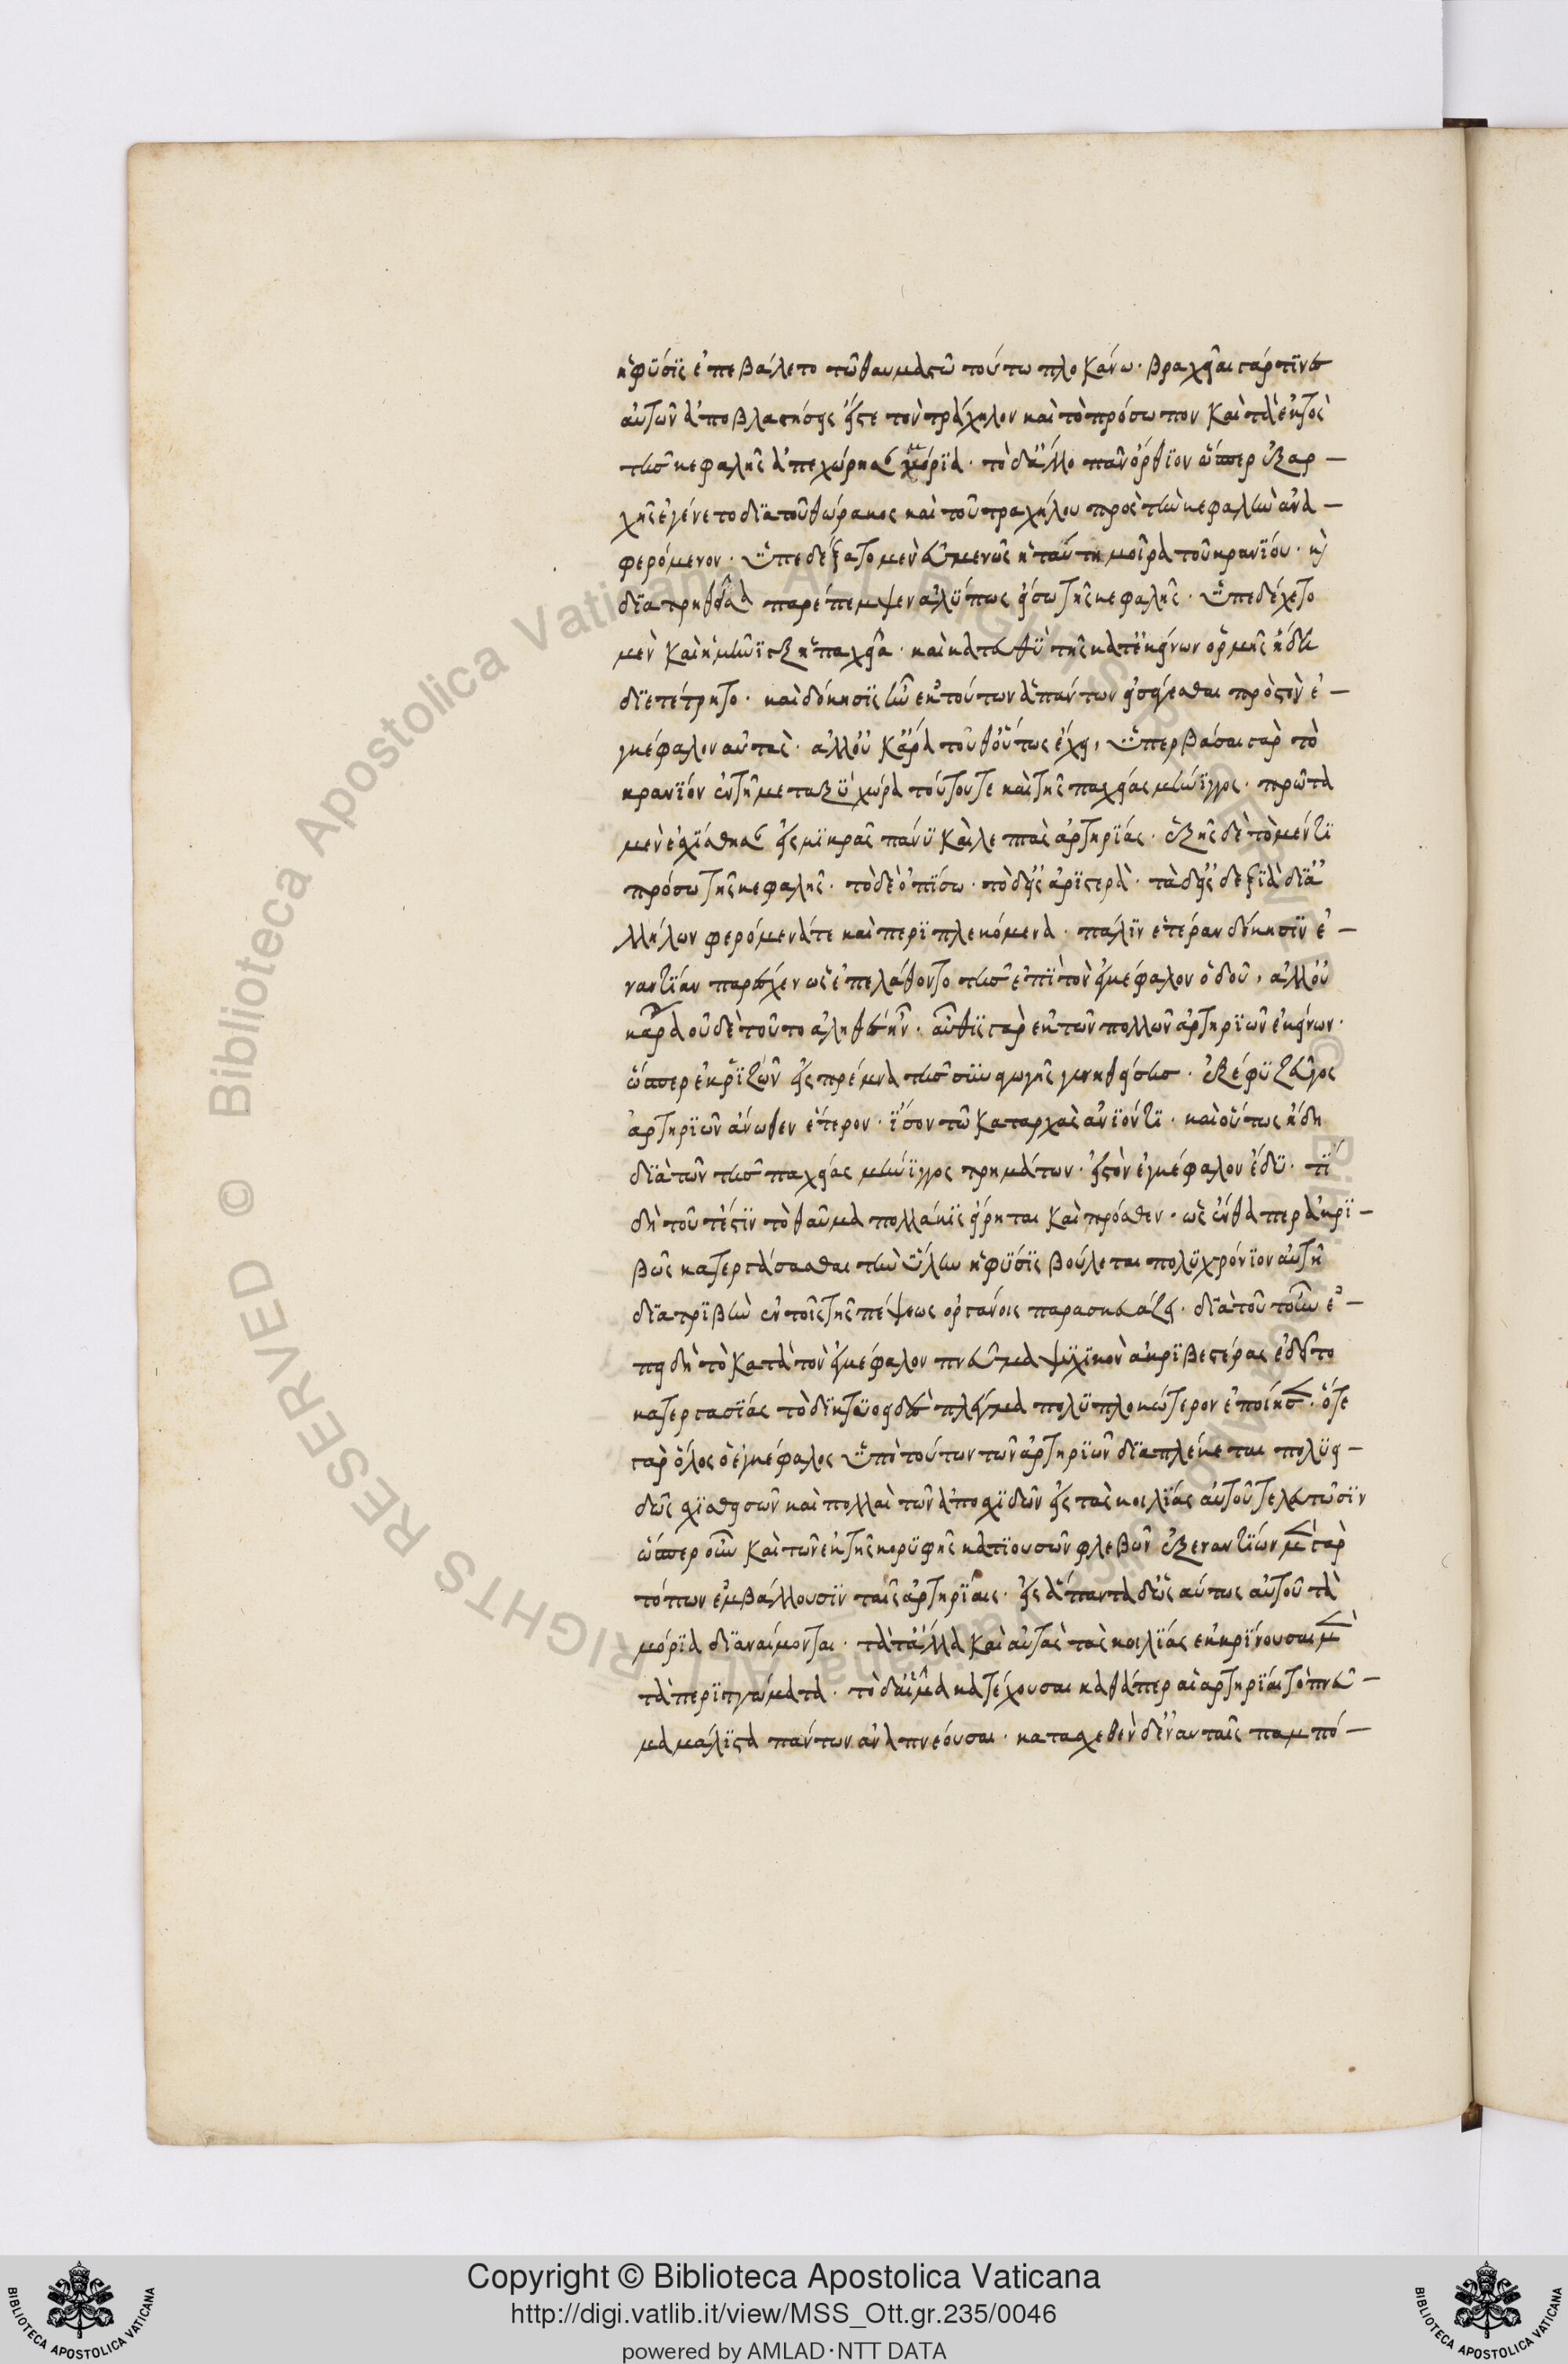 ἡ φύσϊς ἐπεβάλετο τῶ θαυμαστῶ τούτω πλοκάνω· βραχεῖαι γάρ τϊνες
αὐτῶν ἀποβλαστήσεις εἴς τε τὸν τράχηλον καὶ τὸ πρόσωπον καὶ τὰ ἐκτὸς
τῆς κεφαλῆς ἀπεχώρησαν μόρϊα· τὸ δ' ἄλλο πᾶν ὄρθϊον ὥσπερ ἐξαρ-
χῆς ἐγένετο δϊὰ τοῦ θώρακος καὶ τοῦ τραχήλου πρὸς τὴν κεφαλὴν ἀνα-
φερόμενον· ὑπεδέξατο μὲν εὐμενῶς ἡ ταύτη μοῖρα τοῦ κρανΐου· καὶ
δϊατρηθεῖσα παρέπεμψεν ἀλύπως εἴσω τῆς κεφαλῆς· ὑπεδέχετο
μὲν καὶ ἡ μῆνϊγξ ἡ παχεῖα· καὶ κατευθὺ τῆς κατ' ἐκείνων ὁρμῆς ἤδη
δϊετέτρητο· καὶ δόκησϊς ἦν ἐκ τούτων ἁπάντων εἰσιέσθαι πρὸς τὸν ἐ-
γκέφαλον αὐτάς· ἀλλ' οὐκ ἄρα τοῦθ' οὕτως ἔχει, ὑπερβᾶσαι γὰρ τὸ
κρανΐον ἐν τῆ μεταξὺ χώρα τούτου τε καὶ τῆς παχείας μήνϊγγος· πρῶτα
μὲν ἐσχΐσθησαν εἰς μϊκρὰς πάνυ καὶ λεπτὰς ἀρτηρΐας· ἑξῆς δὲ τὸ μέν τϊ
πρόσω τῆς κεφαλῆς· τὸ δὲ ὀπΐσω· τὸ δ' εἰς ἀρϊστερὰ· τὰ δ' εἰς δεξϊὰ δϊ' ἀ
λλήλων φερόμενά τε καὶ περϊπλεκόμενα· πάλϊν ἑτέραν δόκησϊν ἐ-
ναντΐαν παρασχεῖν ὡς ἐπελάθοντο τῆς ἐπϊ τὸν ἐγκέφαλον ὁδοῦ, ἀλλ' οὐ
κ ἄρα οὐδὲ τοῦτο ἀληθὲς ἦν· αὖθϊς γὰρ ἐκ τῶν πολλῶν ἀρτηρϊῶν ἐκείνων·
ὥσπερ ἐκ ῥϊζῶν εἰς πρέμνα τῆς συναγωγῆς γενηθείσης· ἐξέφυ ζεῦγος
ἀρτηρϊῶν ἄνωθεν ἕτερον· ἴσον τῶ καταρχὰς ἀνϊόντϊ· καὶ οὕτως ἤδη
δϊὰ τῶν τῆς παχείας μήνϊγγος τρημάτων· εἰς τὸν ἐγκέφαλον ἔδυ· τΐ
δὴ τοῦτ' ἔστϊν τὸ θαῦμα πολλάκϊς εἴρηται καὶ πρόσθεν· ὡς ἔνθα περ ἀκρϊ-
βῶς κατεργάσασθαι τὴν ὕλην ἡ φύσϊς βούλεται πολυχρόνϊον αὐτῆ
δϊατρϊβὴν ἐν τοῖς τῆς πέψεως ὀργάνοις παρασκευάζει· δϊὰ τοῦτ' οὖν ἐ-
πειδὴ τὸ κατὰ τὸν ἐγκέφαλον πνεῦμα ψυχϊκὸν ἀκρϊβεστέρας ἐδεῖτο
κατεργασΐας τὸ δϊκτυοειδὲς πλέγμα πολυπλοκώτερον ἐποίησεν· ὅτε
γὰρ ὅλος ὁ ἐγκέφαλος ὑπὸ τούτων τῶν ἀρτηρϊῶν δϊαπλέκεται πολυει-
δῶς σχϊσθεισῶν καὶ πολλαὶ τῶν ἀποσχϊδῶν εἰς τὰς κοιλΐας αὐτοῦ τελευτῶσϊν
ὥσπερ οὖν καὶ τῶν ἐκ τῆς κορυφῆς κατϊουσῶν φλεβῶν ἐξ ἐναντΐων μὲν γὰρ
τόπων ἐμβάλλουσϊν ταῖς ἀρτηρΐαις· εἰς ἅπαντα δ' ὡσαύτως αὐτοῦ τὰ
μόρϊα δϊανέμονται· τά τ' ἄλλα καὶ αὐτὰς τὰς κοιλΐας ἐκκρΐνουσαι μὲν
τὰ περϊττώματα· τὸ δ' αἷμα κατέχουσαι καθάπερ αἱ ἀρτηρΐαι τὸ πνεῦ-
μα μάλϊστα πάντων ἀναπνέουσαι· κατασχεθὲν δ' ἐν αὐταῖς παμπό-
Copyright © Biblioteca Apostolica Vaticana
http://digi.vatlib.it/view/MSS_Ott.gr.235/0046
powered by AMLAD·NTT DATA